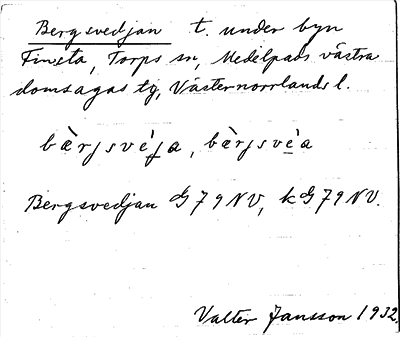 Bergsvedjan t. under byn
Finsta, Torps sn, Medelpads västra
domsagas tg, Västernorrlands l.
bæ̀rjsvèja, bæ̀rjsvèa
Bergsvedjan G79NV, kG79NV.
Valter Jansson 1932.